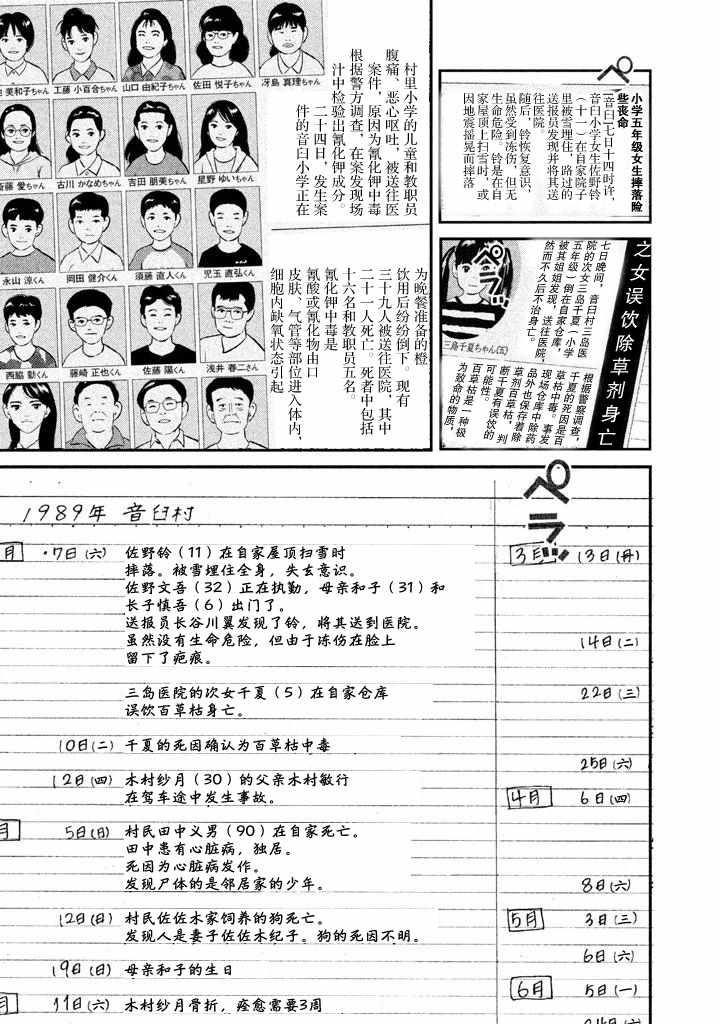 ペラ
小学五年级女生摔落险
些丧命
音臼七日十四时许，
音臼小学女生佐野铃
（十一）在自家院子
里被雪埋住，路过的
送报员发现并将其送
往医院。
随后，铃恢复意识，
虽然受到冻伤，但无
生命危险。铃是在自
家屋顶上扫雪时，或
因地震摇晃而摔落
之女误饮除草剂身亡
七日晚间，音臼村三岛医
院的次女三岛千夏（小学
五年级）倒在自家仓库，
被其姐姐发现，送往医院，
然而不久后不治身亡。
ペラッ
三島千夏ちゃん(五)
根据警察调查，
千夏的死因是百
草枯中毒。事发
现场仓库中除药
品外也保存着除
草剂百草枯，判
断千夏有误饮的
可能性。
百草枯是一种极
为致命的物质，
村里小学的儿童和教职员
腹痛、恶心呕吐，被送往医
案件，原因为氰化钾中毒
根据警方调查，在案发现场
汁中检验出氰化钾成分。
二十四日，发生案
件的音臼小学正在
为晚餐准备的橙
饮用后纷纷倒下。现有
三十九人被送往医院，其中
二十一人死亡。死者中包括
十六名和教职员五名。
氰化钾中毒是
氰酸或氰化物由口
皮肤、气管等部位进入体内，
细胞内缺氧状态引起
美和子ちゃん
工藤 小百合ちゃん
山口 由紀子ちゃん
佐田 悦子ちゃん
冴島 真理ちゃん
斎藤 愛ちゃん
古川 かなめちゃん
吉田 朋美ちゃん
星野 ゆいちゃん
永山 涼くん
岡田 健介くん
須藤 直人くん
児玉 直弘くん
西脇 勤くん
藤崎 正也くん
佐藤 陽くん
浅井 春二さん
ペラッ
1989年 音臼村
月 ・7日(六) 佐野铃（11）在自家屋顶扫雪时
摔落。被雪埋住全身，失去意识。
佐野文吾（32）正在执勤，母亲和子（31）和
长子慎吾（6）出门了。
送报员长谷川翼发现了铃，将其送到医院。
虽然没有生命危险，但由于冻伤在脸上
留下了疤痕。
三岛医院的次女千夏（5）在自家仓库
误饮百草枯身亡。
10日(二) 千夏的死因确认为百草枯中毒
12日(四) 木村纱月（30）的父亲木村敏行
在驾车途中发生事故。
月 5日(日) 村民田中义男（90）在自家死亡。
田中患有心脏病，独居。
死因为心脏病发作。
发现尸体的是邻居家的少年。
12日(日) 村民佐佐木家饲养的狗死亡。
发现人是妻子佐佐木纪子。狗的死因不明。
19日(日) 母亲和子的生日
月 11日(六) 木村纱月骨折，痊愈需要3周
3月 13日(月)
14日(二)
22日(三)
25日(六)
4月 6日(四)
8日(六)
5月 3日(三)
6日(六)
6月 5日(一)
24日(六)